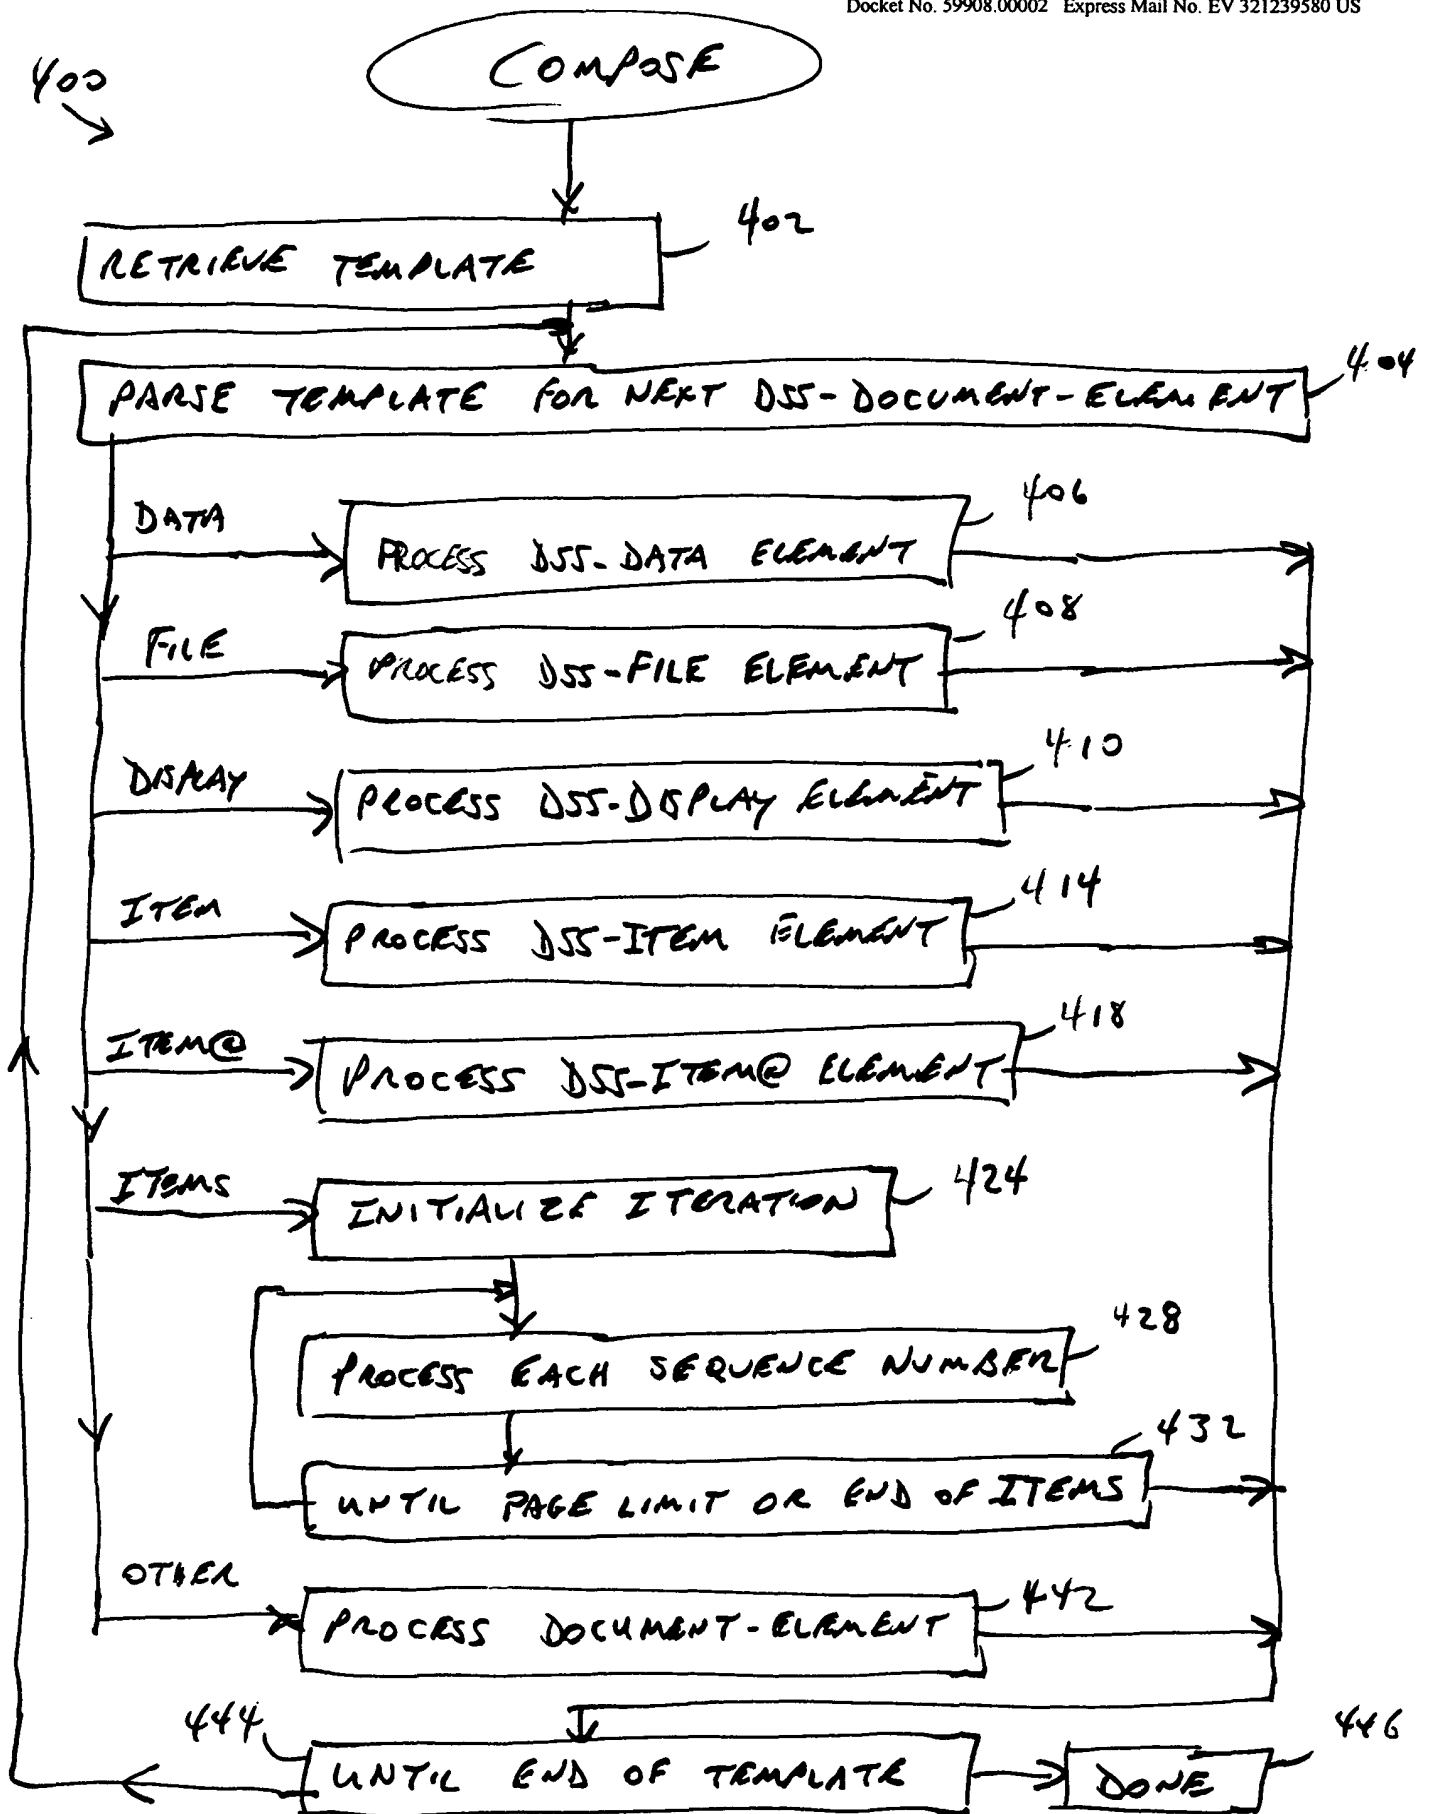 Docket No. 59908.00002 Express Mail No. EV 321239580 US
COMPOSE
400
402
RETRIEVE TEMPLATE
404
PARSE TEMPLATE FOR NEXT DSS-DOCUMENT-ELEMENT
406
DATA
PROCESS DSS-DATA ELEMENT
408
FILE
PROCESS DSS-FILE ELEMENT
410
DISPLAY
PROCESS DSS-DISPLAY ELEMENT
414
ITEM
PROCESS DSS-ITEM ELEMENT
418
ITEM@
PROCESS DSS-ITEM@ ELEMENT
424
ITEMS
INITIALIZE ITERATION
428
PROCESS EACH SEQUENCE NUMBER
432
UNTIL PAGE LIMIT OR END OF ITEMS
OTHER
442
PROCESS DOCUMENT-ELEMENT
444
446
UNTIL END OF TEMPLATE
DONE